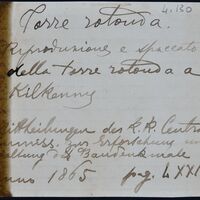 4.130
Torre rotonda.
Riproduzione e spaccato
della torre rotonda a
Kilkenny
Mittheilungen der K.K. Central
Commiss. zur Erforschung und
haltung der Baudenkmale
anno 1865 pg. LXXI